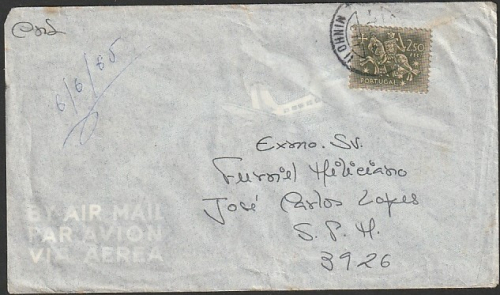 6/6/65
MINHO
2$50
PORTUGAL
Exmo. Sr.
Furriel Miliciano
José Carlos Lopes
S. P. M.
3926
BY AIR MAIL
PAR AVION
VIA AEREA